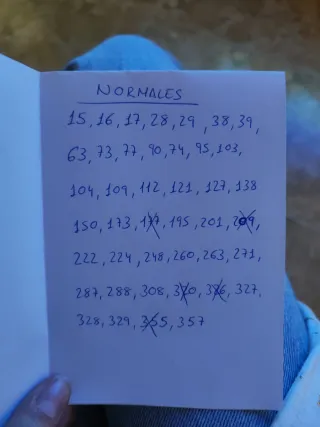 NORMALES
15, 16, 17, 28, 29, 38, 39,
63, 73, 77, 90, 74, 95, 103,
104, 109, 112, 121, 127, 138
150, 173, 177, 195, 201, 209,
222, 224, 248, 260, 263, 271,
287, 288, 308, 320, 326, 327,
328, 329, 355, 357